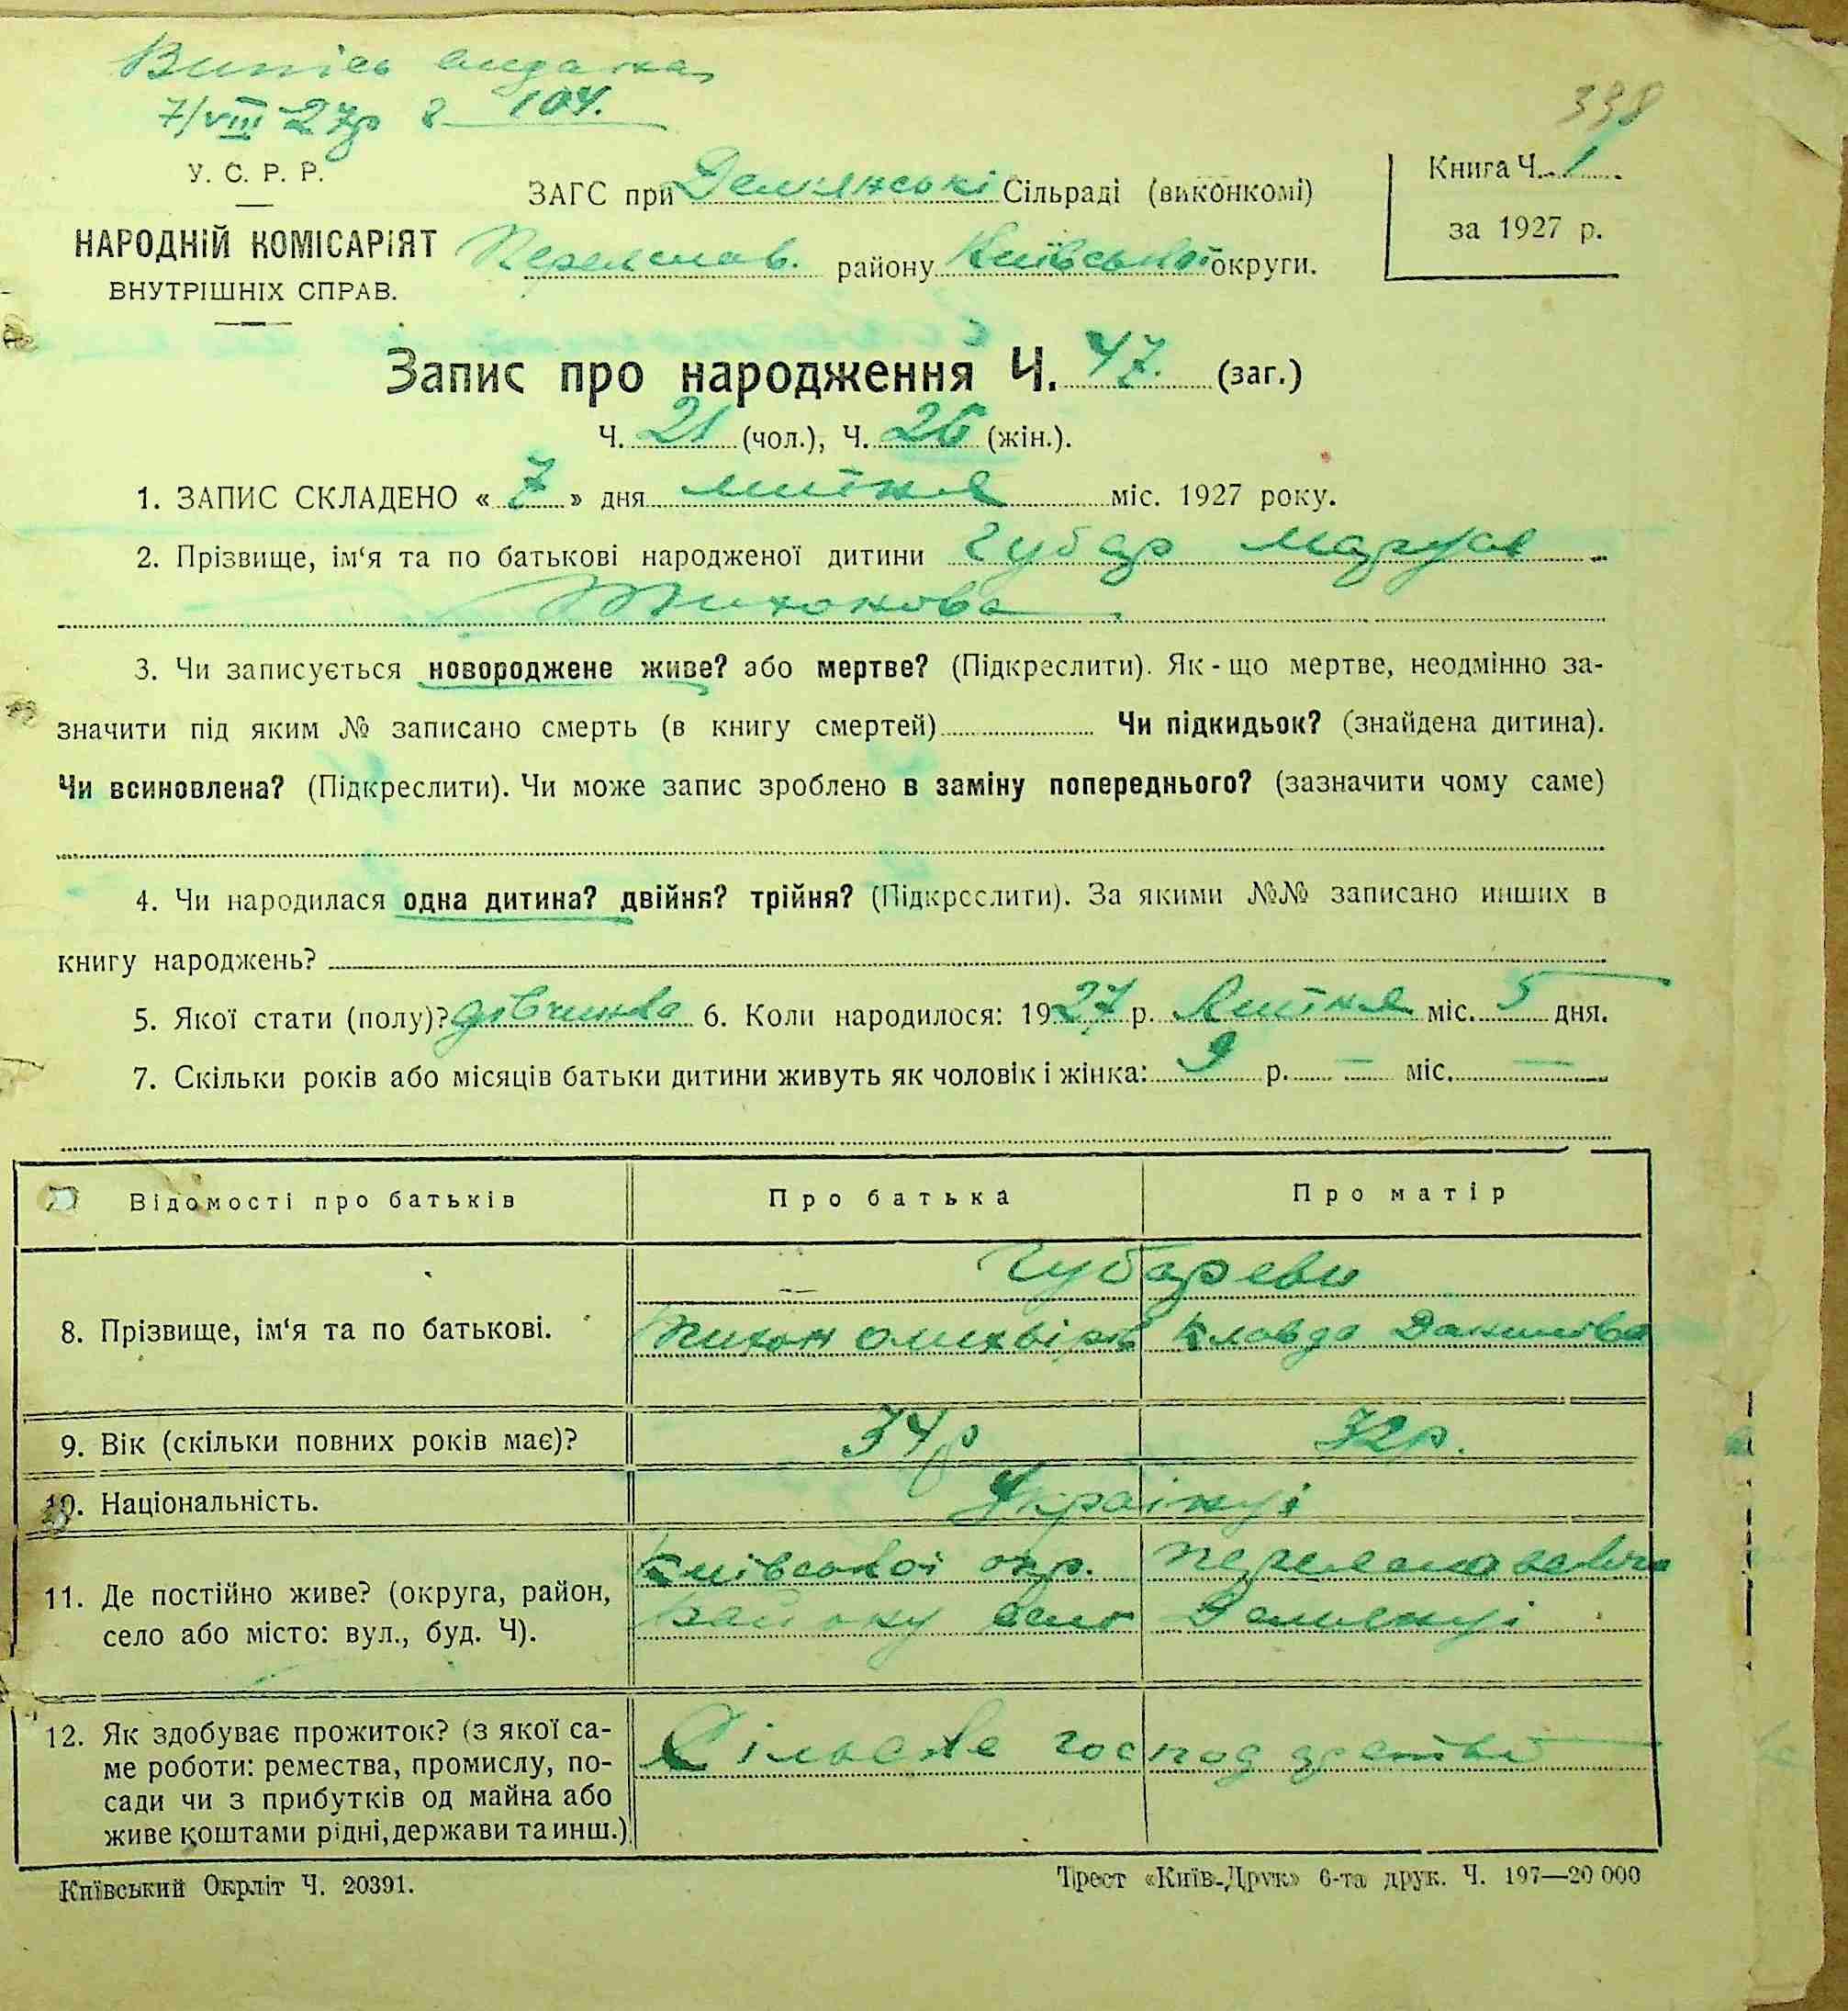 Випісь видана
7/VIII 27р 104.
338
У. С. Р. Р.
НАРОДНІЙ КОМІСАРІЯТ
ВНУТРІШНІХ СПРАВ.
ЗАГС при Демянські Сільраді (виконкомі)
Переяслав. району Київської округи.
Книга Ч. 1
за 1927 р.
Запис про народження Ч. 47. (заг.)
Ч. 21 (чол.), Ч. 26 (жін.).
1. ЗАПИС СКЛАДЕНО « 7 » дня липня міс. 1927 року.
2. Прізвище, ім‘я та по батькові народженої дитини Губар Маруся
Тихонова
3. Чи записується новороджене живе? або мертве? (Підкреслити). Як - що мертве, неодмінно за-
значити під яким № записано смерть (в книгу смертей) Чи підкидьок? (знайдена дитина).
Чи всиновлена? (Підкреслити). Чи може запис зроблено в заміну попереднього? (зазначити чому саме)
4. Чи народилася одна дитина? двійня? трійня? (Підкреслити). За якими №№ записано инших в
книгу народжень?
5. Якої стати (полу)? дівчинка 6. Коли народилося: 1927 р. Липня міс. 5 дня.
7. Скільки років або місяців батьки дитини живуть як чоловік і жінка: 9 р. — міс. —
Відомості про батьків Про батька Про матір
Губареви
8. Прізвище, ім‘я та по батькові.
Тихон Олихвірів Клавда Данилова
9. Вік (скільки повних років має)? 34р 32р.
10. Національність. Українці
Київської окр. Переяславськ
11. Де постійно живе? (округа, район,
району село Демянці
село або місто: вул., буд. Ч).
12. Як здобуває прожиток? (з якої са-
ме роботи: ремества, промислу, по-
сади чи з прибутків од майна або
живе коштами рідні, держави та инш.)
Сільське господарство
Київський Окрліт Ч. 20391.
Трест «Київ-Друк» 6-та друк. Ч. 197—20 000